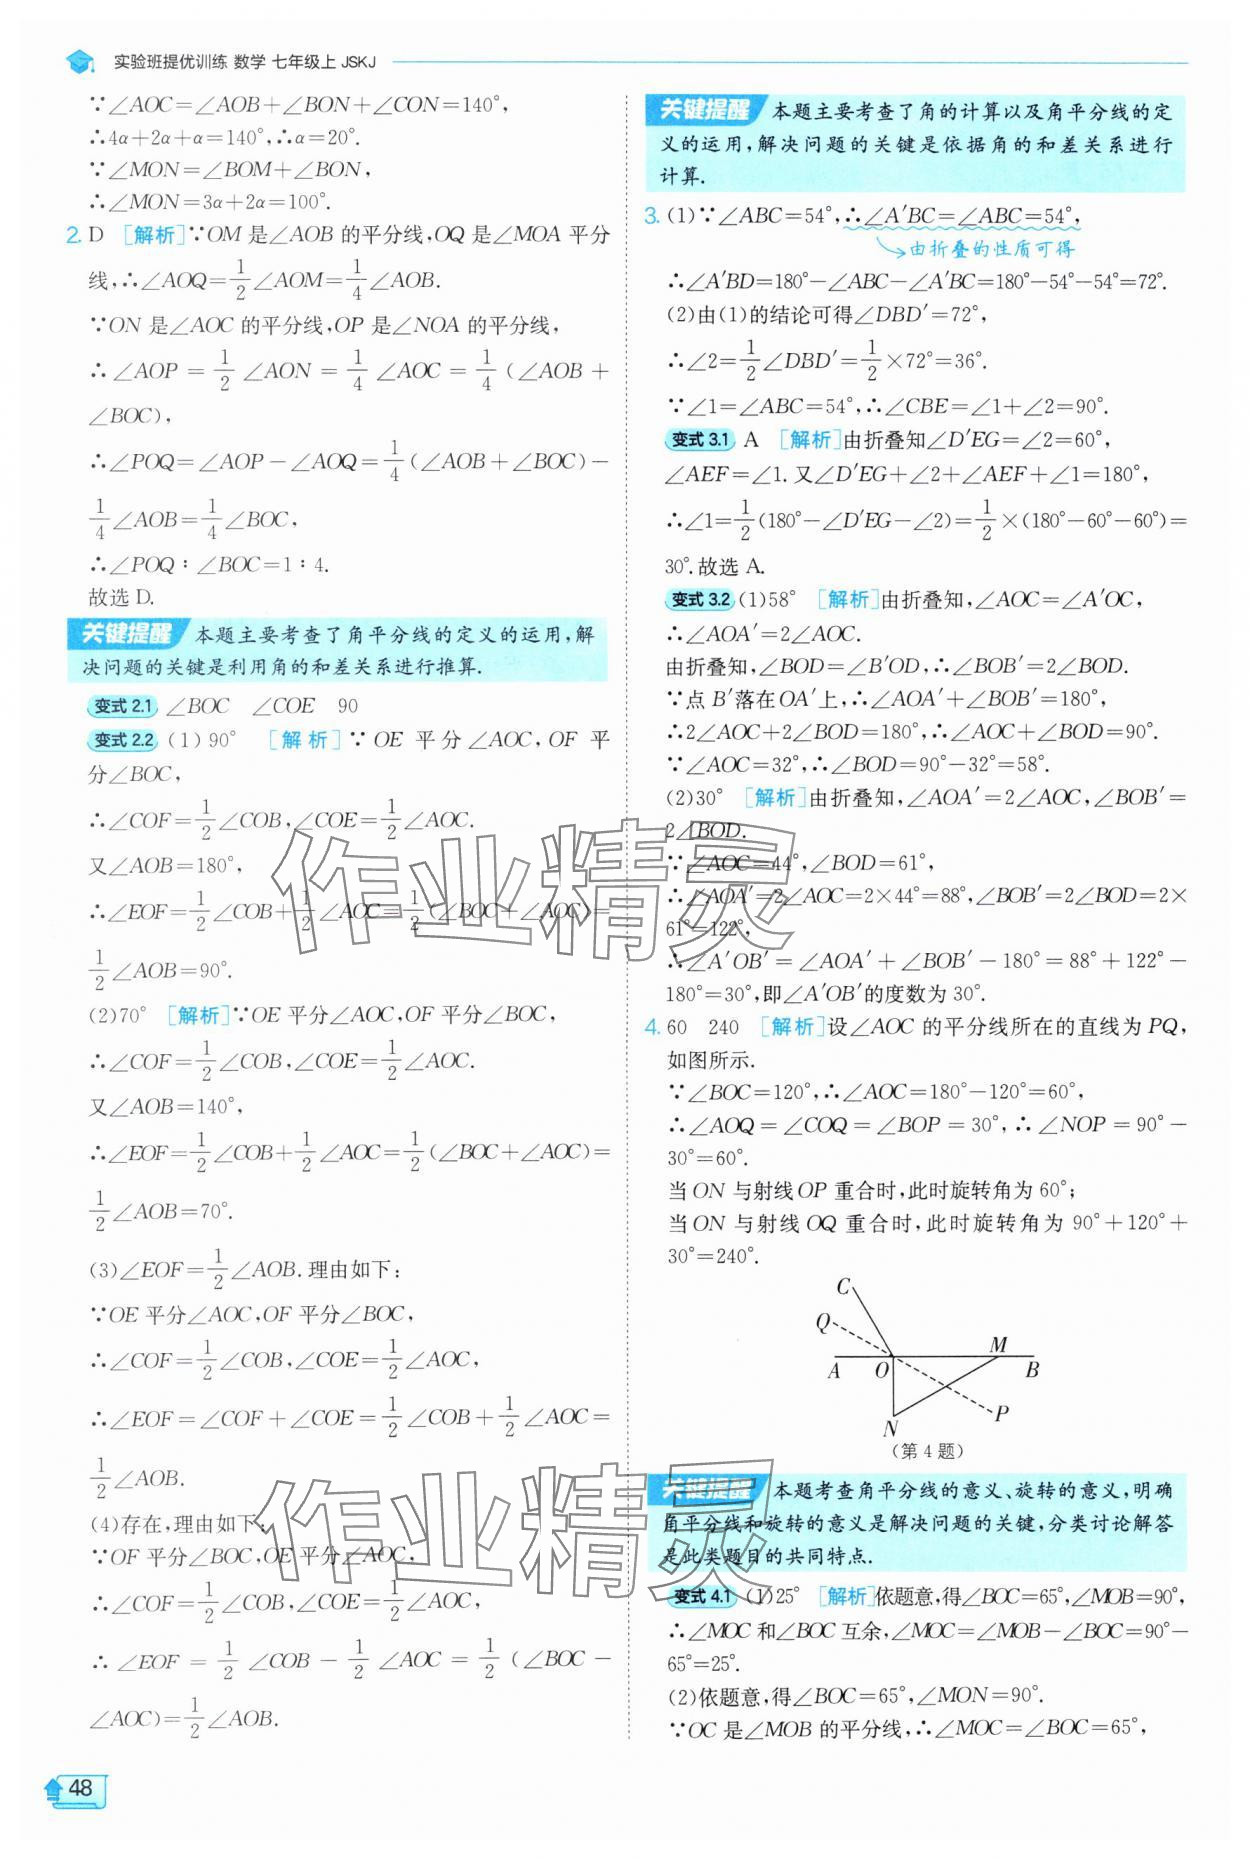 实验班提优训练 数学 七年级上 JSKJ
∵∠AOC=∠AOB+∠BON+∠CON=140°,
∴4α+2α+α=140°,∴α=20°.
∵∠MON=∠BOM+∠BON,
∴∠MON=3α+2α=100°.
2. D [解析]∵OM 是∠AOB 的平分线,OQ 是∠MOA 平分
线,∴∠AOQ=1/2∠AOM=1/4∠AOB.
∵ON 是∠AOC 的平分线,OP 是∠NOA 的平分线,
∴∠AOP=1/2∠AON=1/4∠AOC=1/4(∠AOB+
∠BOC),
∴∠POQ=∠AOP-∠AOQ=1/4(∠AOB+∠BOC)-
1/4∠AOB=1/4∠BOC,
∴∠POQ∶∠BOC=1∶4.
故选 D.
关键提醒 本题主要考查了角平分线的定义的运用,解
决问题的关键是利用角的和差关系进行推算.
变式 2.1 ∠BOC ∠COE 90
变式 2.2 (1)90° [解析]∵OE 平分∠AOC,OF 平
分∠BOC,
∴∠COF=1/2∠COB,∠COE=1/2∠AOC.
又∠AOB=180°,
∴∠EOF=1/2∠COB+1/2∠AOC=1/2(∠BOC+∠AOC)=
1/2∠AOB=90°.
(2)70° [解析]∵OE平分∠AOC,OF平分∠BOC,
∴∠COF=1/2∠COB,∠COE=1/2∠AOC.
又∠AOB=140°,
∴∠EOF=1/2∠COB+1/2∠AOC=1/2(∠BOC+∠AOC)=
1/2∠AOB=70°.
(3)∠EOF=1/2∠AOB.理由如下:
∵OE 平分∠AOC,OF 平分∠BOC,
∴∠COF=1/2∠COB,∠COE=1/2∠AOC,
∴∠EOF=∠COF+∠COE=1/2∠COB+1/2∠AOC=
1/2∠AOB.
(4)存在,理由如下:
∵OF 平分∠BOC,OE 平分∠AOC,
∴∠COF=1/2∠COB,∠COE=1/2∠AOC,
∴∠EOF=1/2∠COB-1/2∠AOC=1/2(∠BOC-
∠AOC)=1/2∠AOB.
48
关键提醒 本题主要考查了角的计算以及角平分线的定
义的运用,解决问题的关键是依据角的和差关系进行
计算.
3. (1)∵∠ABC=54°,∴∠A′BC=∠ABC=54°,
由折叠的性质可得
∴∠A′BD=180°-∠ABC-∠A′BC=180°-54°-54°=72°.
(2)由(1)的结论可得∠DBD′=72°,
∴∠2=1/2∠DBD′=1/2×72°=36°.
∵∠1=∠ABC=54°,∴∠CBE=∠1+∠2=90°.
变式 3.1 A [解析]由折叠知∠D′EG=∠2=60°,
∠AEF=∠1.又∠D′EG+∠2+∠AEF+∠1=180°,
∴∠1=1/2(180°-∠D′EG-∠2)=1/2×(180°-60°-60°)=
30°.故选 A.
变式 3.2 (1)58° [解析]由折叠知,∠AOC=∠A′OC,
∴∠AOA′=2∠AOC.
由折叠知,∠BOD=∠B′OD,∴∠BOB′=2∠BOD.
∵点 B′落在OA′上,∴∠AOA′+∠BOB′=180°,
∴2∠AOC+2∠BOD=180°,∴∠AOC+∠BOD=90°.
∵∠AOC=32°,∴∠BOD=90°-32°=58°.
(2)30° [解析]由折叠知,∠AOA′=2∠AOC,∠BOB′=
2∠BOD.
∵∠AOC=44°,∠BOD=61°,
∴∠AOA′=2∠AOC=2×44°=88°,∠BOB′=2∠BOD=2×
61°=122°,
∴∠A′OB′=∠AOA′+∠BOB′-180°=88°+122°-
180°=30°,即∠A′OB′的度数为 30°.
4. 60 240 [解析]设∠AOC 的平分线所在的直线为 PQ,
如图所示.
∵∠BOC=120°,∴∠AOC=180°-120°=60°,
∴∠AOQ=∠COQ=∠BOP=30°,∴∠NOP=90°-
30°=60°.
当ON 与射线OP 重合时,此时旋转角为 60°;
当ON 与射线 OQ 重合时,此时旋转角为 90°+120°+
30°=240°.
C
Q
M
A O B
P
N
(第 4 题)
关键提醒 本题考查角平分线的意义、旋转的意义,明确
角平分线和旋转的意义是解决问题的关键,分类讨论解答
是此类题目的共同特点.
变式 4.1 (1)25° [解析]依题意,得∠BOC=65°,∠MOB=90°,
∴∠MOC 和∠BOC 互余,∠MOC=∠MOB-∠BOC=90°-
65°=25°.
(2)依题意,得∠BOC=65°,∠MON=90°.
∵OC 是∠MOB 的平分线,∴∠MOC=∠BOC=65°,
作业精灵
作业精灵